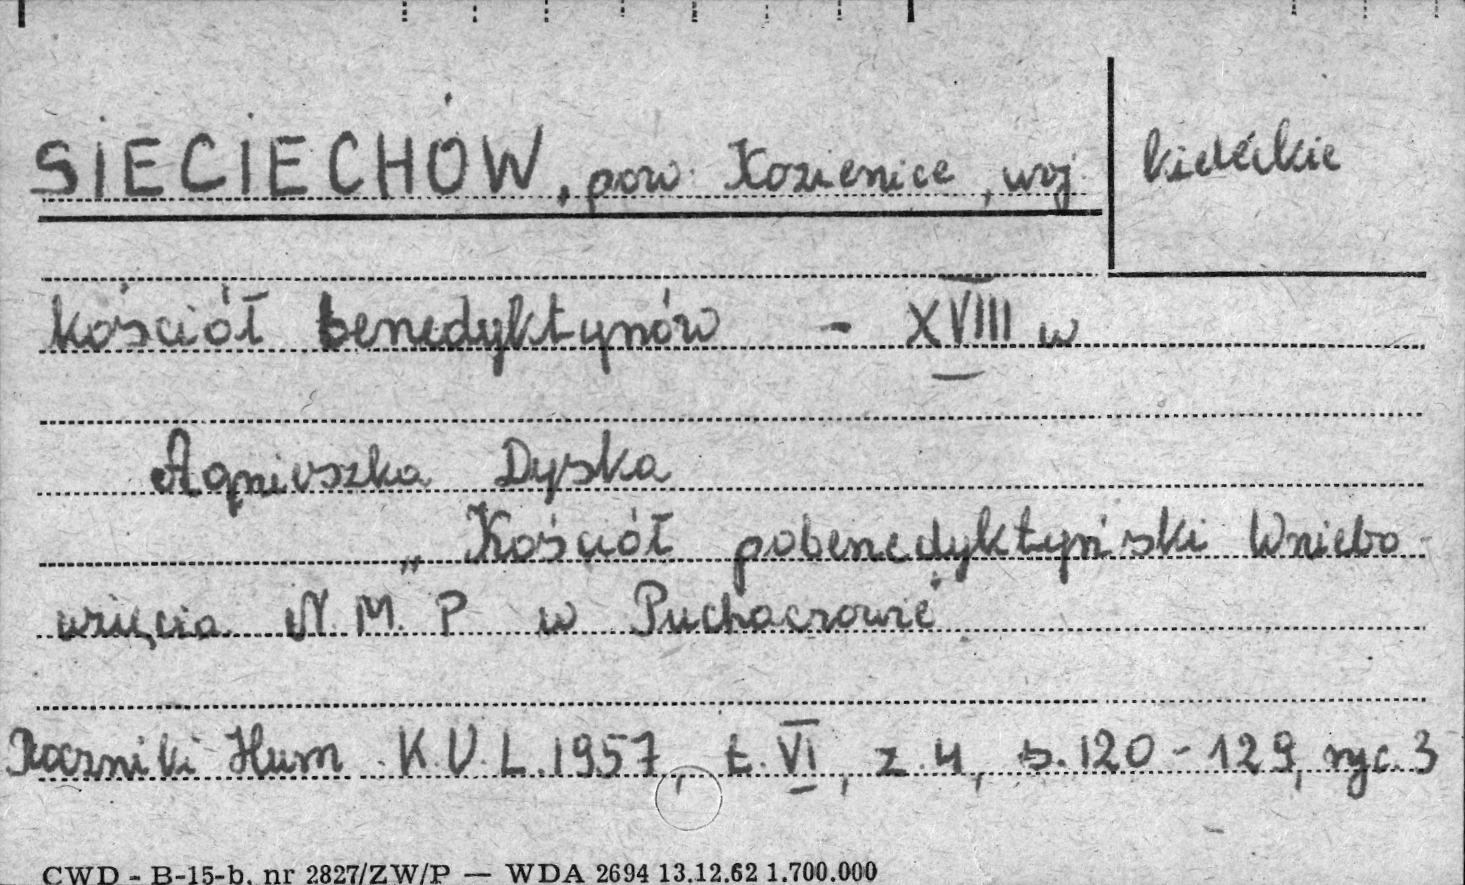 SIECIECHÓW, pow. Kozienice, woj. kieleckie
kościół benedyktynów - XVIII w
Agnieszka Dyska
„Kościół pobenedyktyński Wniebo-
wzięcia N.M.P w Puchaczowie"
Roczniki Hum. K.U.L. 1957, t. VI, z. 4, s. 120-129, ryc. 3
CWD - B-15-b, nr 2827/ZW/P — WDA 2694 13.12.62 1.700.000